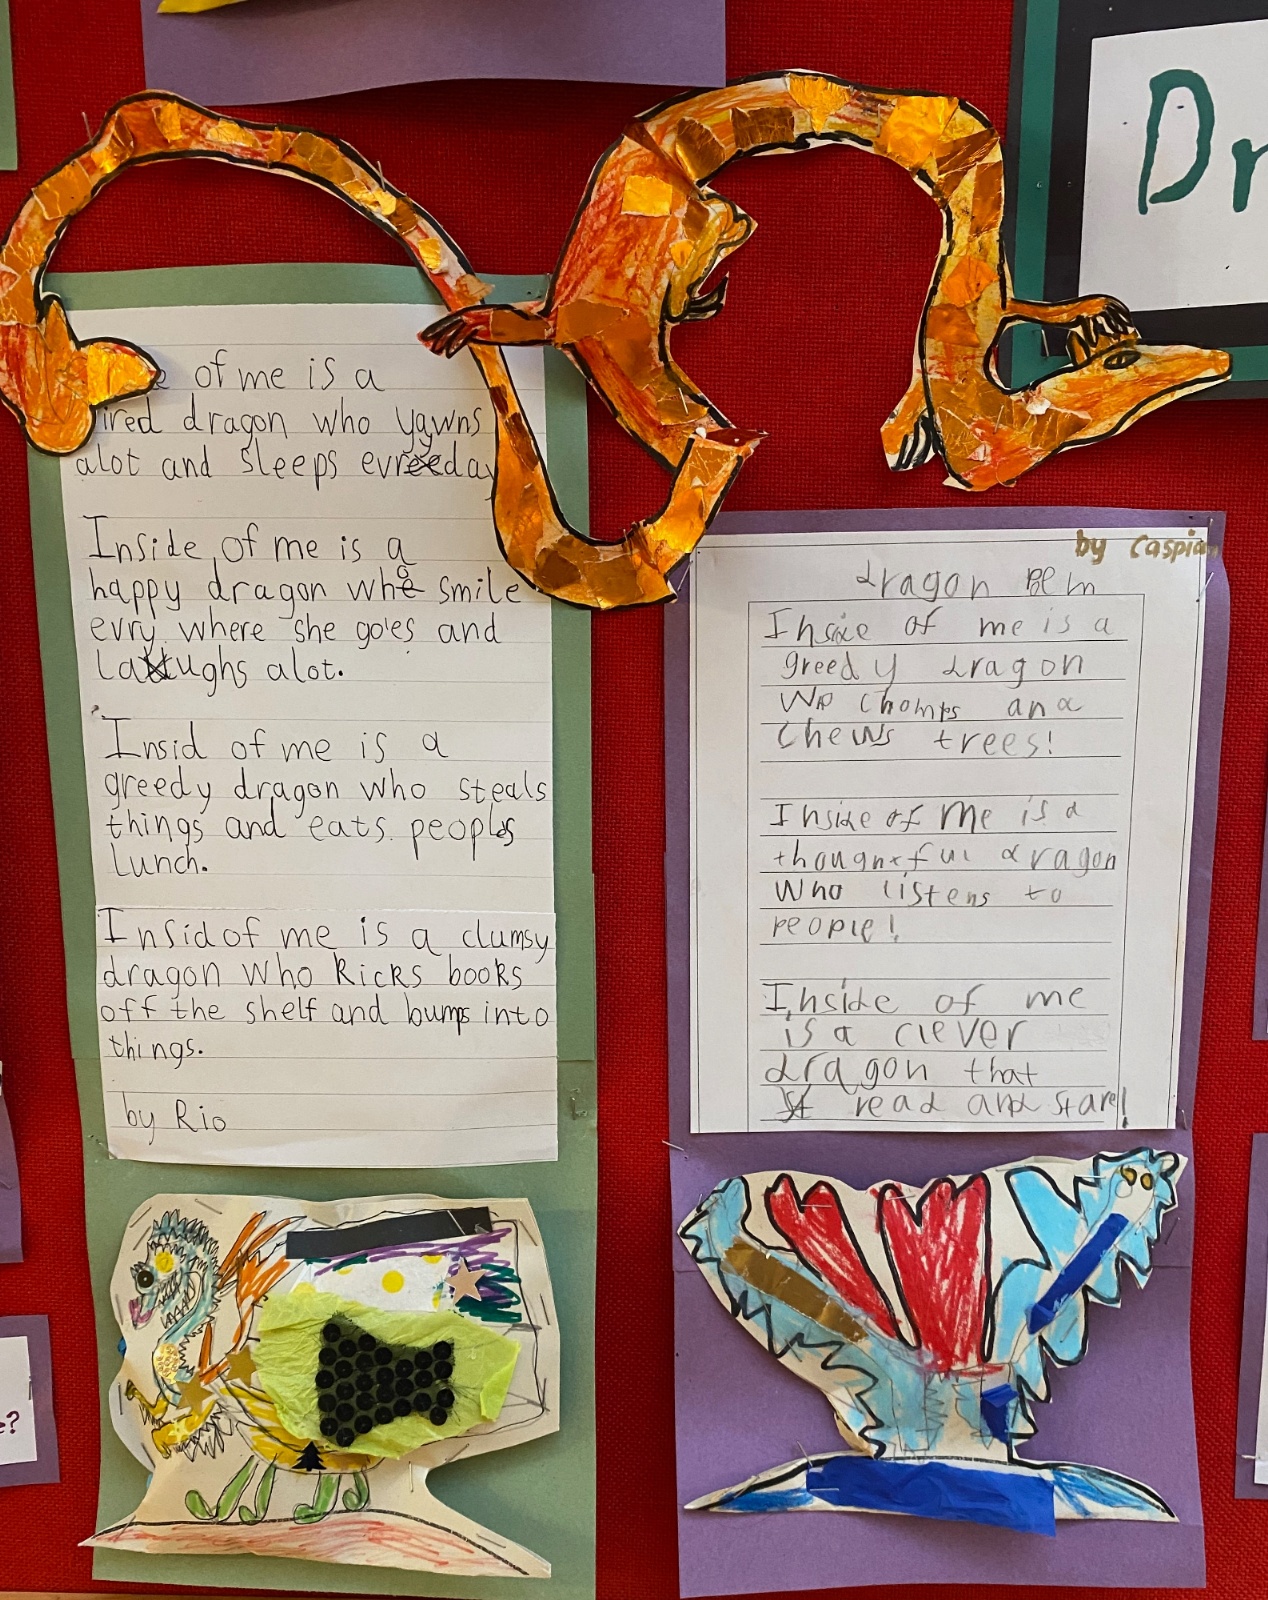 Dr
of me is a
ired dragon who yawns
alot and sleeps evreeday
Inside of me is a
happy dragon who smile
evry where she goes and
laughs alot.
Insid of me is a
greedy dragon who steals
things and eats peoples
lunch.
Insid of me is a clumsy
dragon who kicks books
off the shelf and bumps into
things.
by Rio
by Caspian
dragon
Inside of me is a
greedy dragon
who chomps and
chews trees!
Inside of me is a
dragon
who listens to
people!
Inside of me
is a clever
dragon that
read and stare!
?